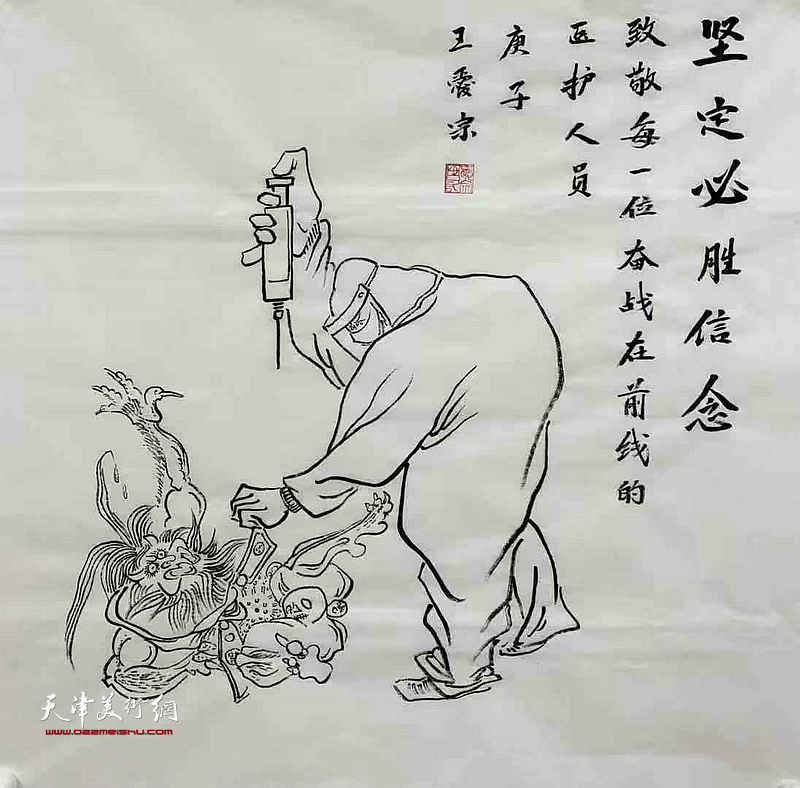 坚定必胜信念
致敬每一位奋战在前线的
医护人员
庚子
王爱宗
天津美術網
www.022meishu.com